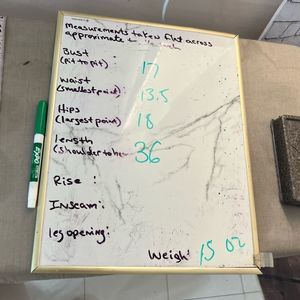 measurements taken flat across
approximate to
Bust
(Pit to pit) 17
Waist
(smallest point): 13.5
Hips
(largest point) 18
length
(shoulder to hem 36
Rise :
Inseam:
leg opening:
Weigh: 15 oz
EXPO